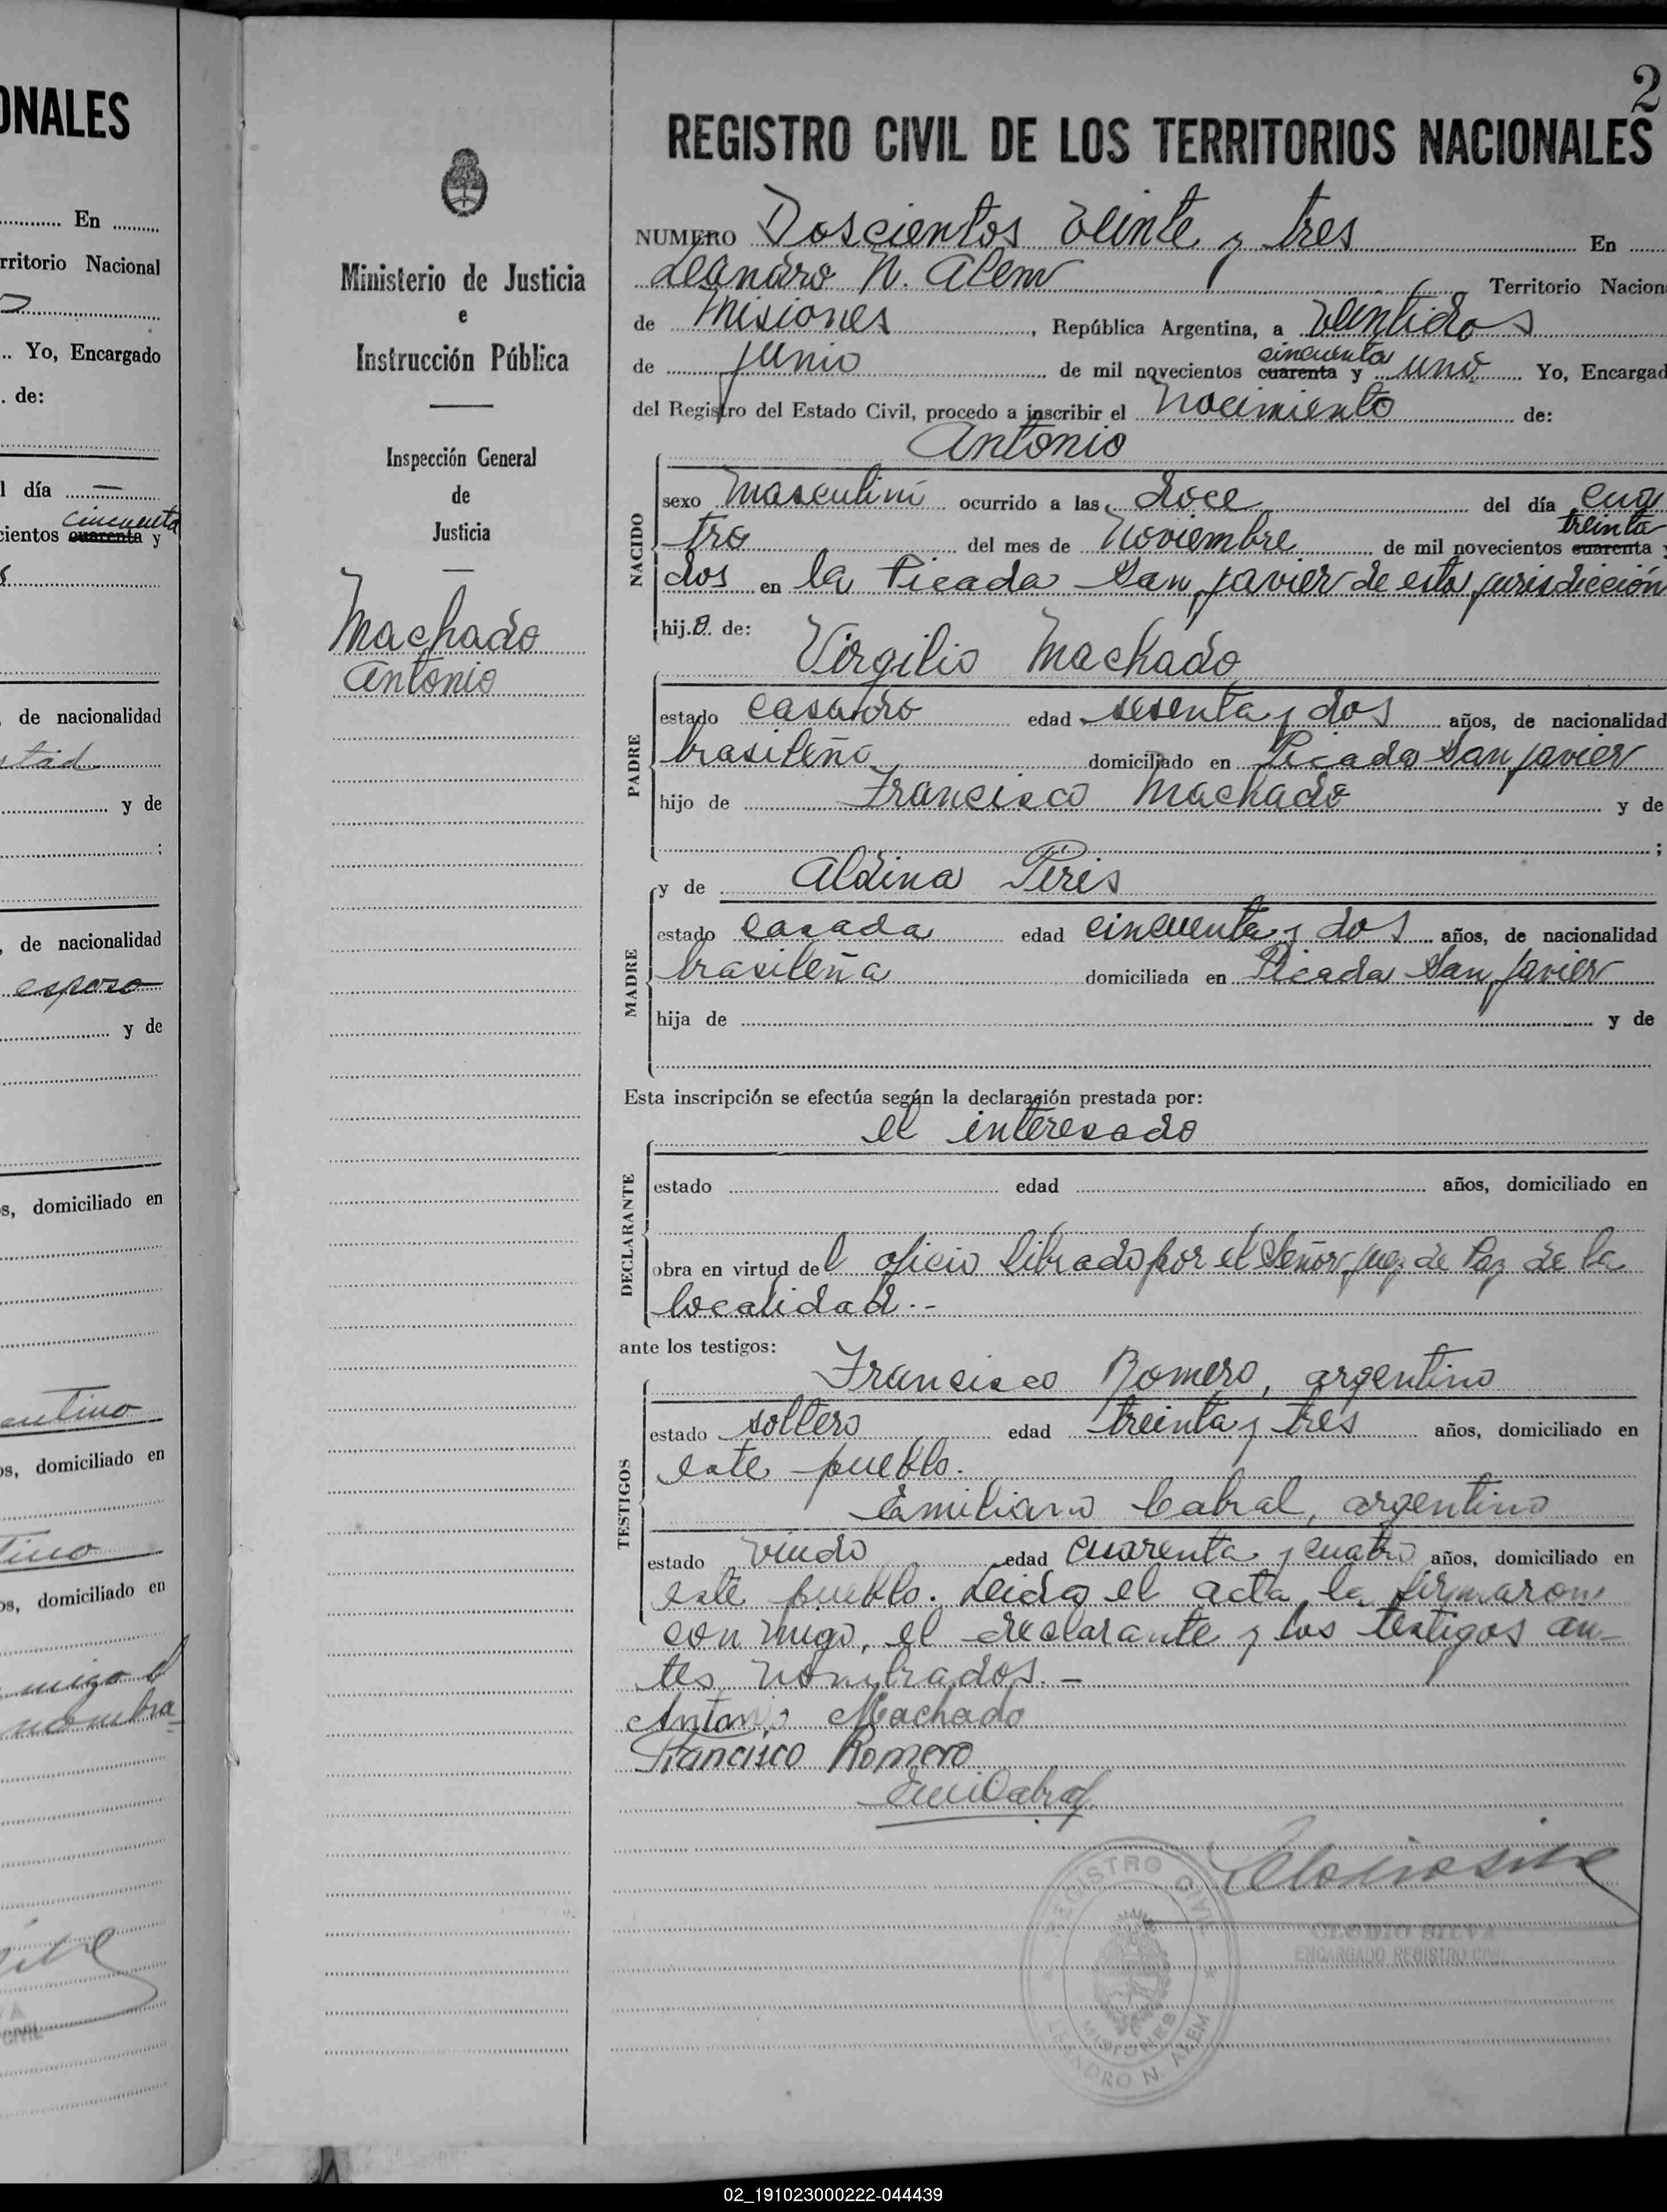 ONALES
En
rritorio Nacional
Yo, Encargado
de:
l día —
cincuenta
cientos cuarenta y
, de nacionalidad
y de
;
, de nacionalidad
esposo
y de
s, domiciliado en
entino
os, domiciliado en
tino
os, domiciliado en
migo
nombra-
CIVIL
Ministerio de Justicia
e
Instrucción Pública
Inspección General
de
Justicia
Machado
Antonio
2
REGISTRO CIVIL DE LOS TERRITORIOS NACIONALES
NUMERO Doscientos veinte y tres En
Leandro N. Alem Territorio Nacion
de Misiones, República Argentina, a veintidos
de junio de mil novecientos cuarenta cincuenta y uno Yo, Encargad
del Registro del Estado Civil, procedo a inscribir el nacimiento de:
Antonio
NACIDO
sexo masculini ocurrido a las doce del día cua
treinta
tro del mes de noviembre de mil novecientos cuarenta y
dos en la Picada San Javier de esta jurisdicción
hijo de: Virgilio Machado
PADRE
estado casado edad sesenta y dos años, de nacionalidad
brasileño domiciliado en Picada San Javier
hijo de Francisco Machado y de
;
y de Aldina Piris
MADRE
estado casada edad cincuenta y dos años, de nacionalidad
brasileña domiciliada en Picada San Javier
hija de y de
Esta inscripción se efectúa según la declaración prestada por:
el interesado
DECLARANTE
estado edad años, domiciliado en
obra en virtud del oficio librado por el Señor Juez de Paz de la
localidad.-
ante los testigos:
Francisco Romero, argentino
TESTIGOS
estado soltero edad treinta y tres años, domiciliado en
este pueblo.
Emiliano Cabral, argentino
estado viudo edad cuarenta y cuatro años, domiciliado en
este pueblo. Leida el acta la firmaron
con migo, el declarante y los testigos an-
tes nombrados.-
Antonio Machado
Francisco Romero
Emi Cabral
Clodio Silva
REGISTRO CIVIL
MISIONES
LEANDRO N. ALEM
CLODIO SILVA
ENCARGADO REGISTRO CIVIL
02_191023000222-044439